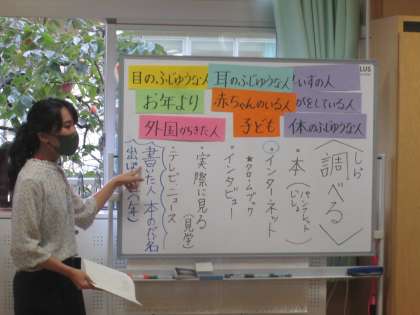 目のふじゆうな人
耳のふじゆうな人
いすの人
お年より
赤ちゃんのいる人
がをしている人
外国からきた人
子ども
体のふじゆうな人
しら
〈調べる〉
・本(パンフレット
じしょ)
・インターネット
★クロームブック
・インタビュー
・実際に見る(見学)
・テレビ・ニュース
書いた人 本の名